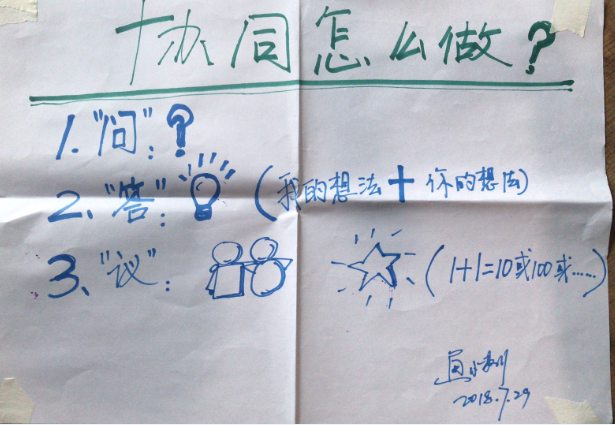 协同怎么做?
1."问":?
2、"答":(我的想法+你的想法)
3、"议":(1+1=10或100或……)
2018.7.29